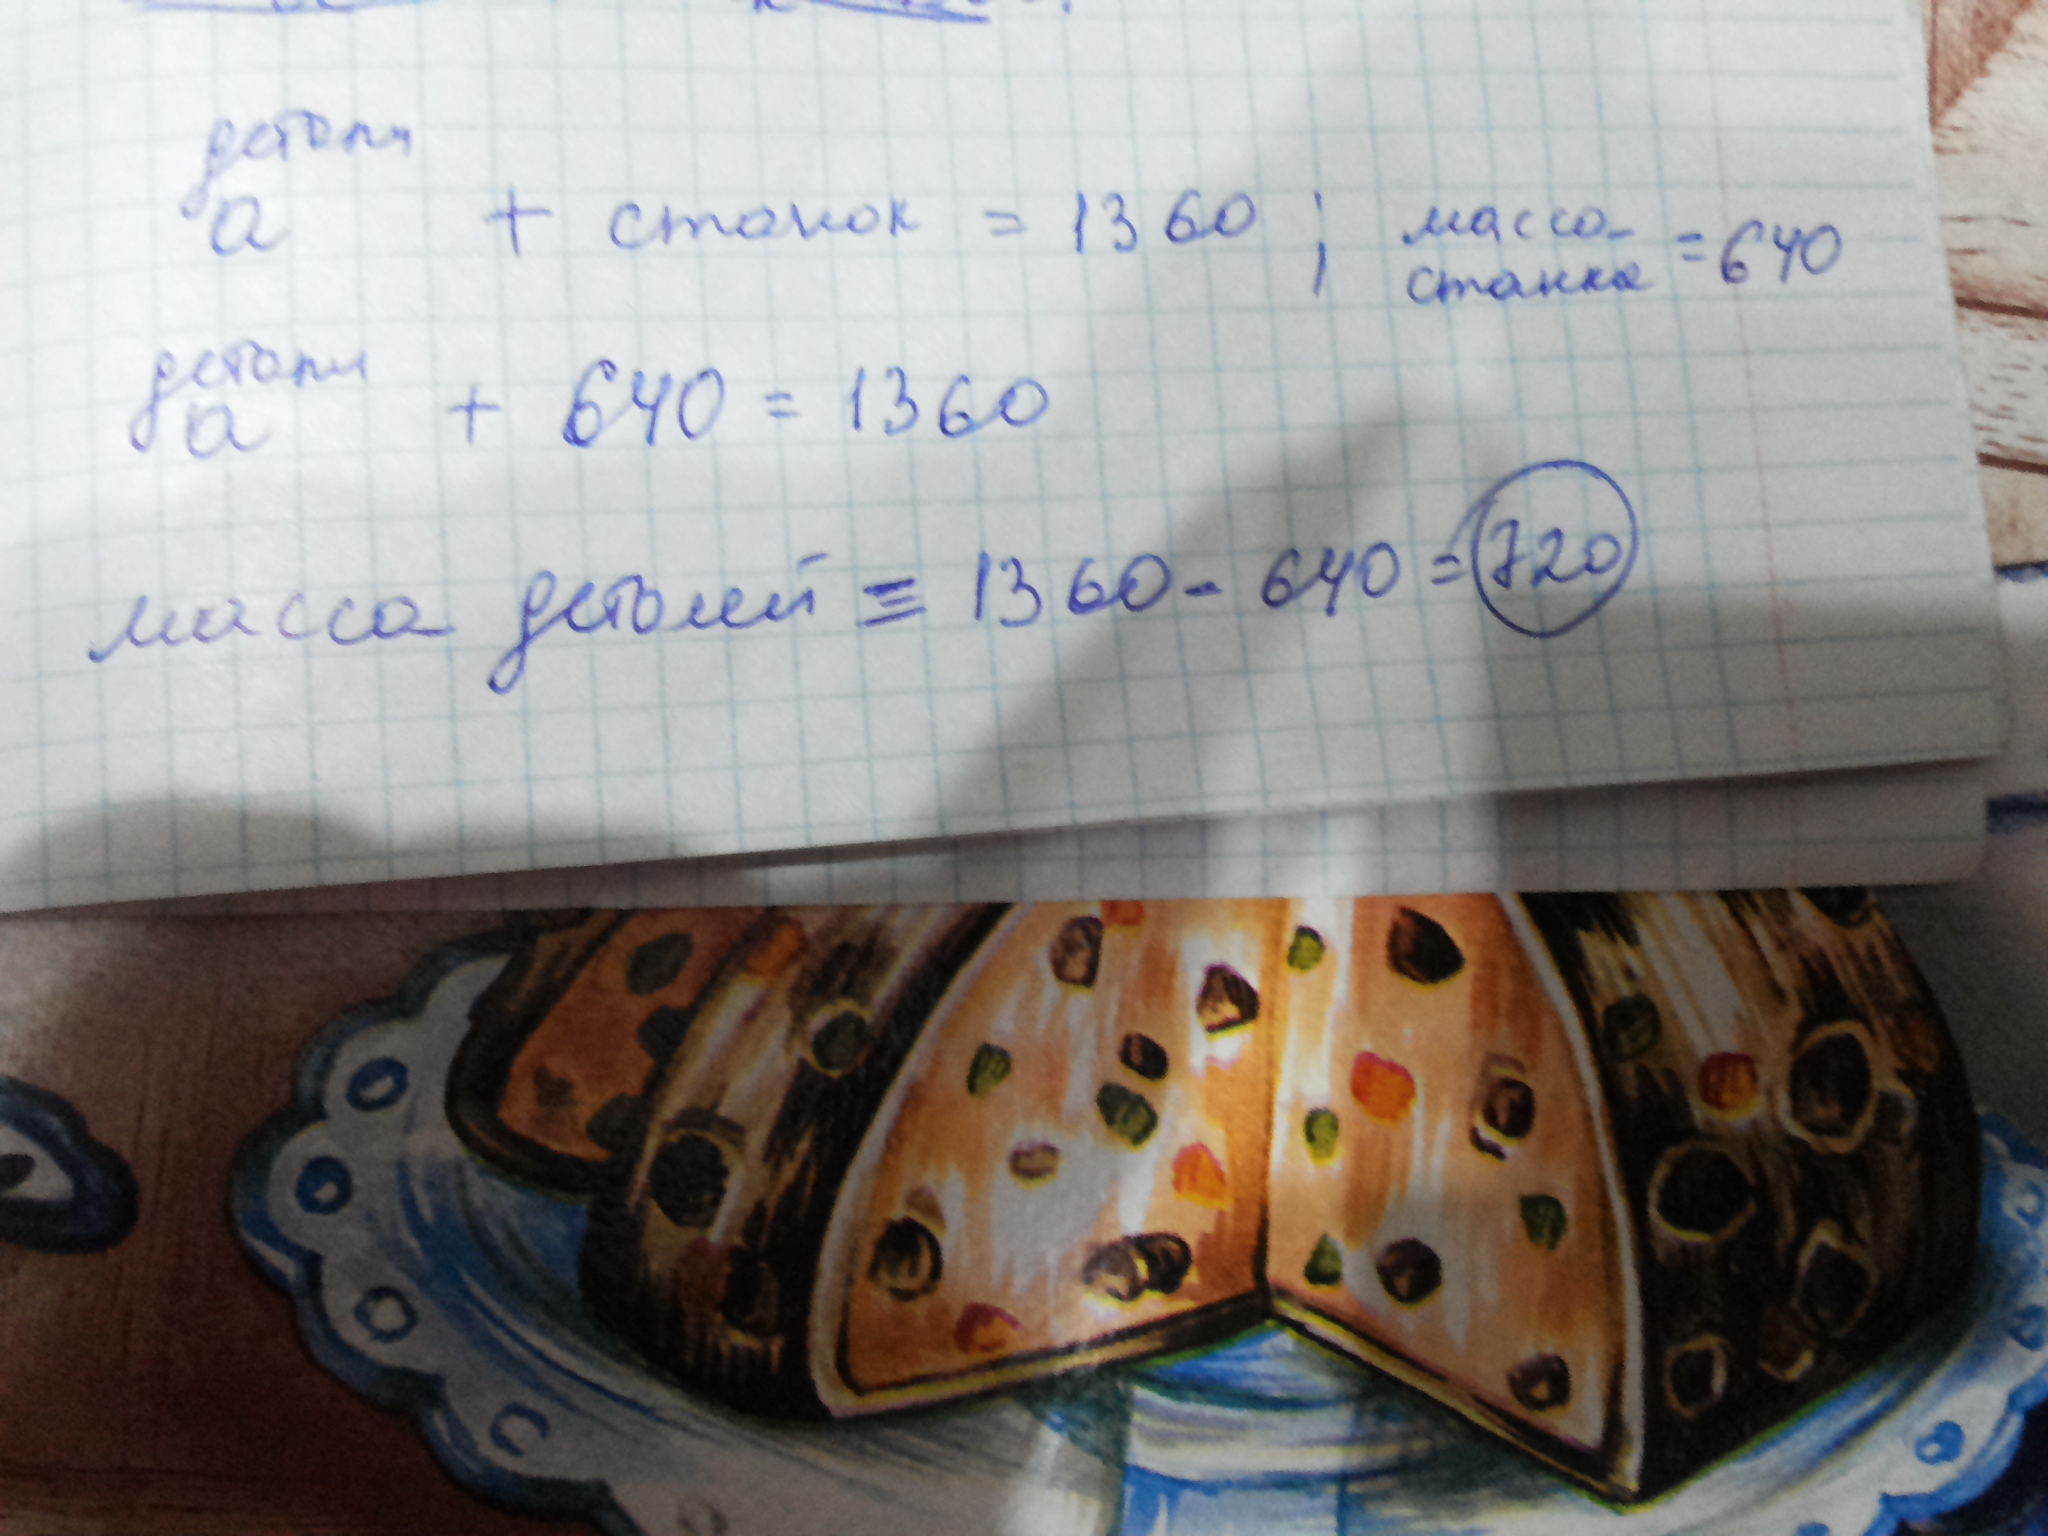 детали
а + станок = 1360 ; масса станка = 640
детали
а + 640 = 1360
масса деталей = 1360 - 640 = 720